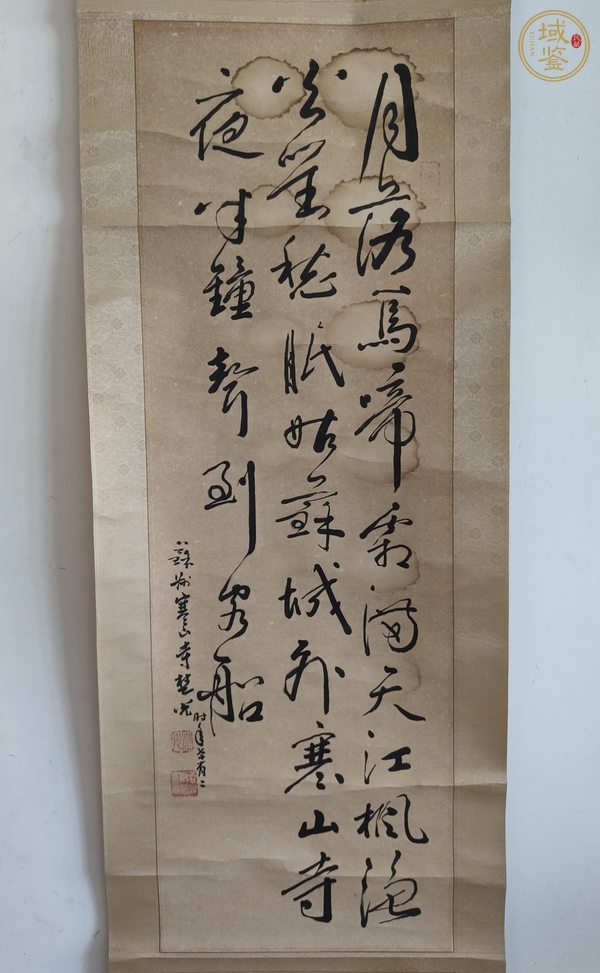 月落烏啼霜滿天江楓漁
火對愁眠姑蘇城外寒山寺
夜半鐘聲到客船
蘇州寒山寺楚光
时年
有二
域鉴
YUJIAN